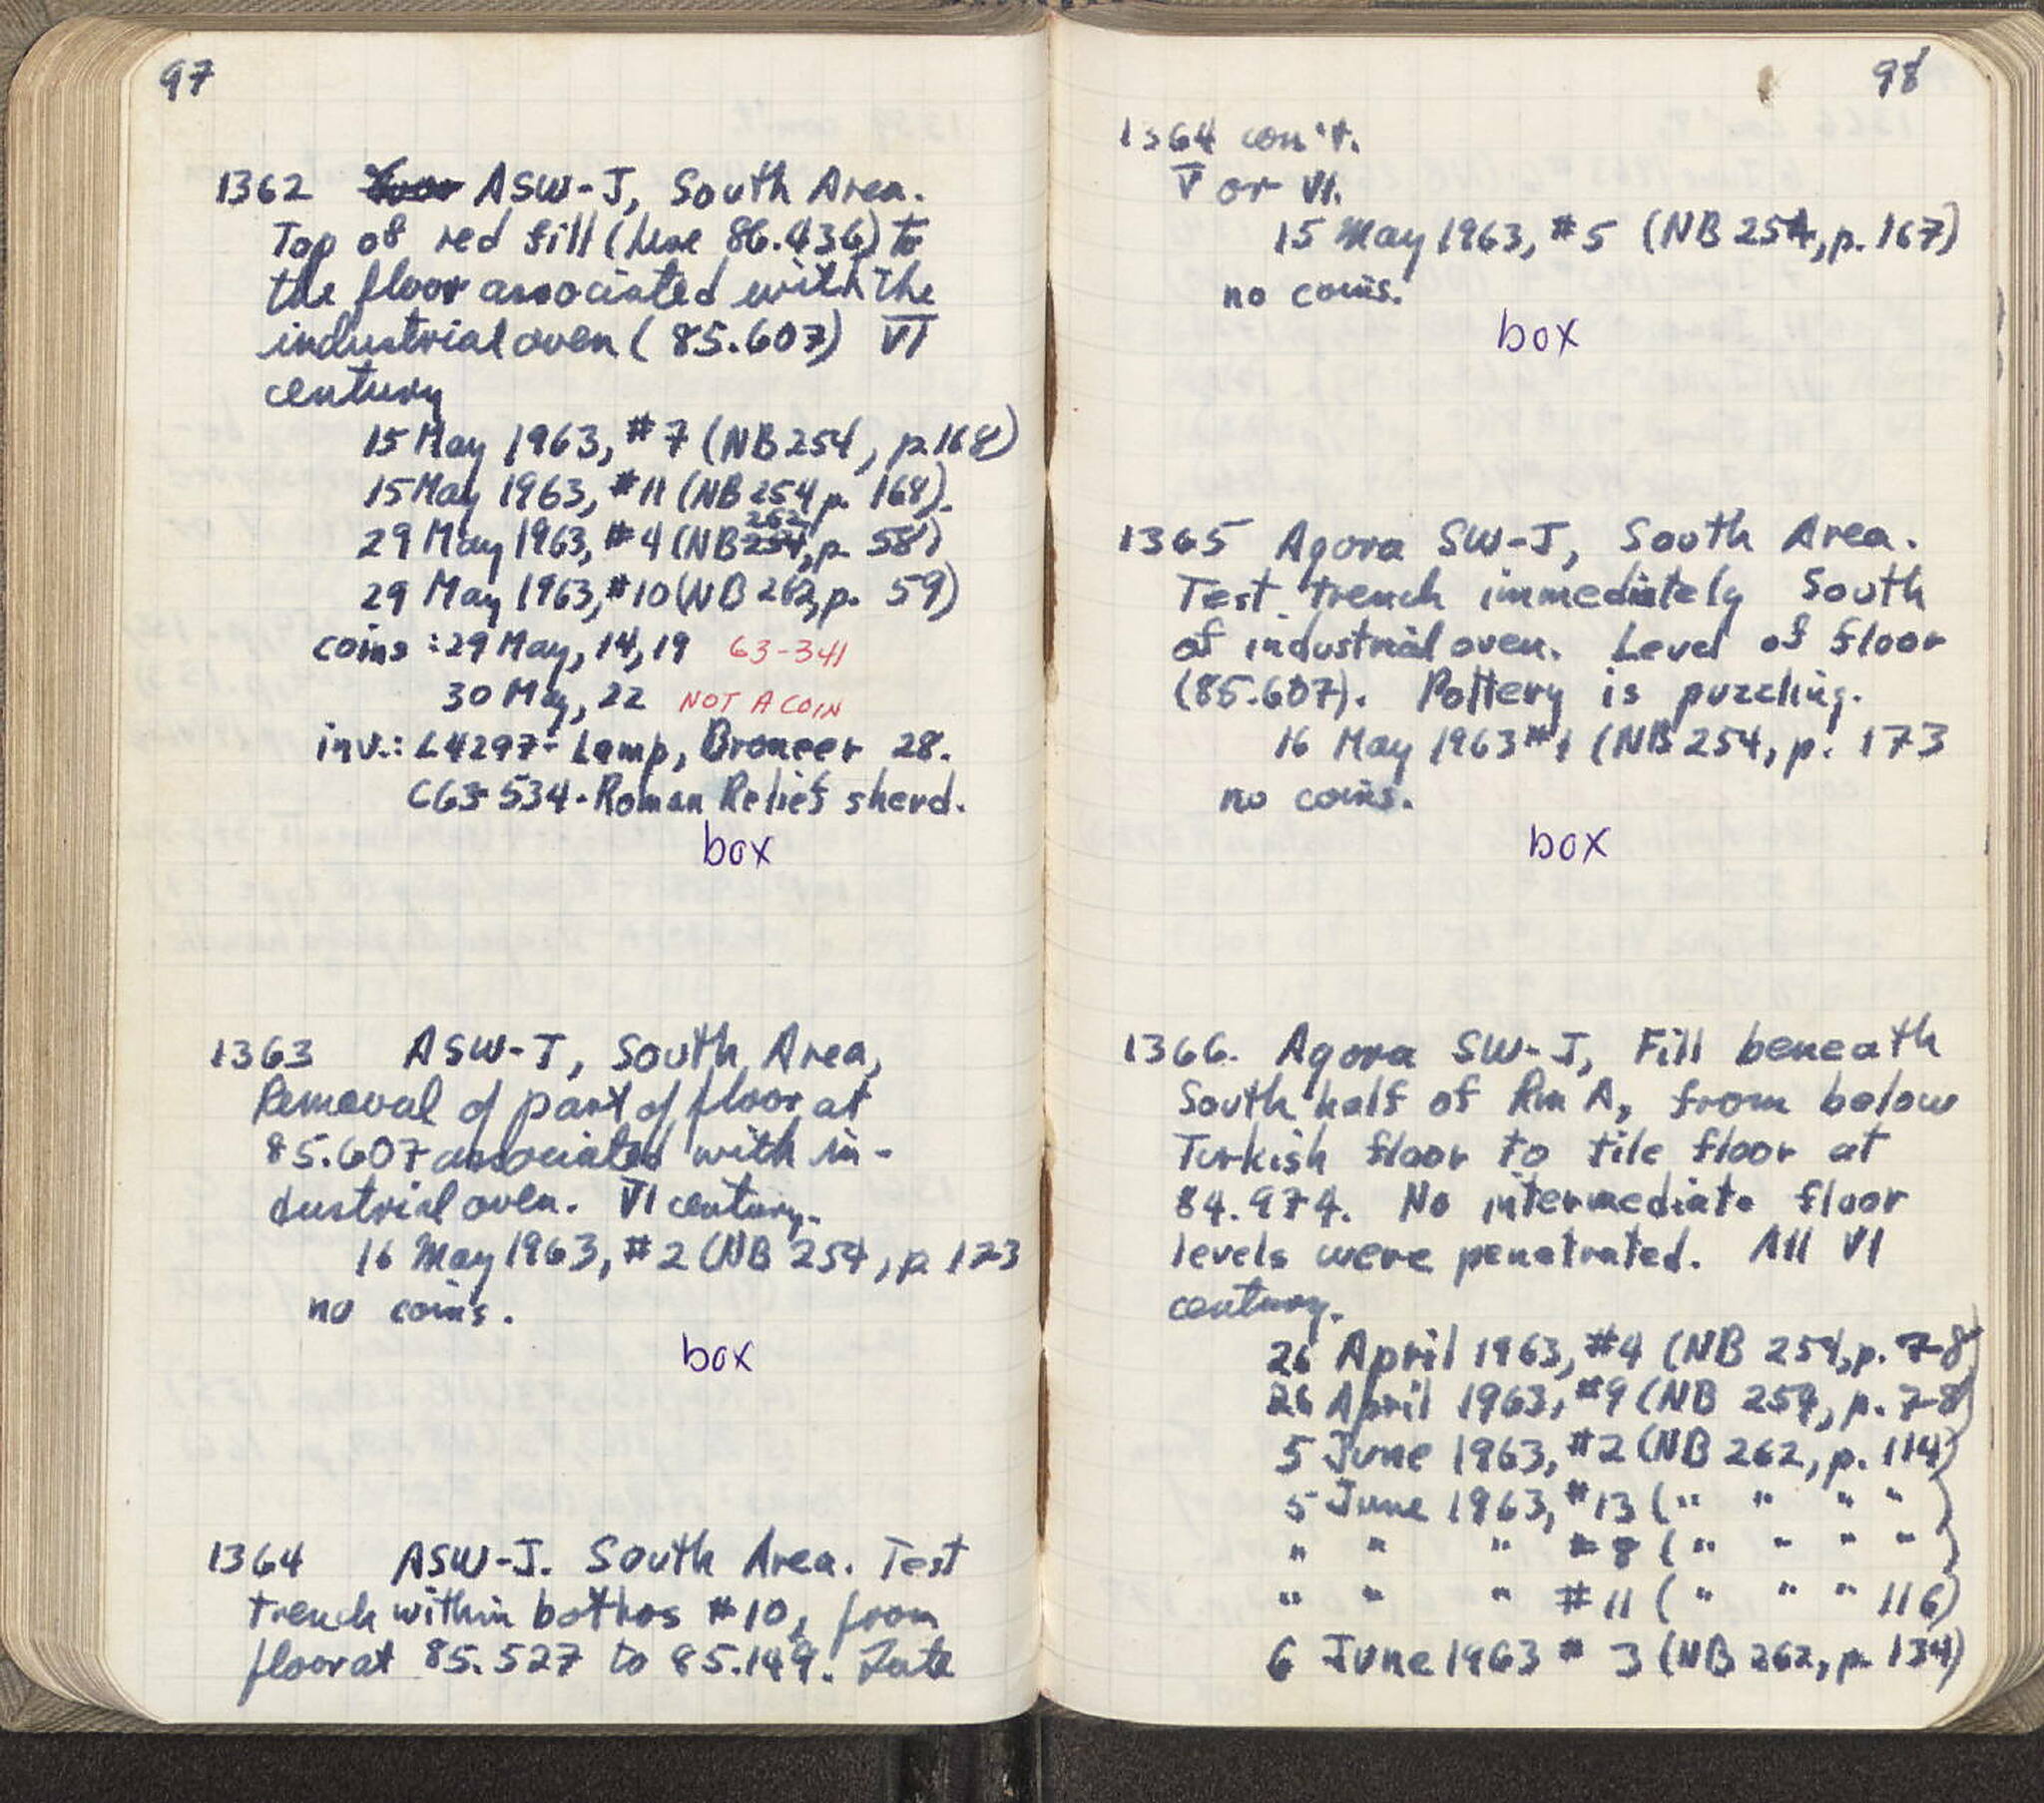 97
1362 ASW-J, South Area.
Top of red fill (here 86.436) to
the floor associated with the
industrial oven (85.607) VI
century
15 May 1963, #7 (NB 254, p.168)
15 May 1963, #11 (NB 254 p. 168).
262
29 May 1963, #4 (NB 254, p. 58)
29 May 1963, #10 (NB 262, p. 59)
coins : 29 May, 14, 19 63-341
30 May, 22 NOT A COIN
inv.: L4297- Lamp, Broneer 28.
C63-534-Roman Relief sherd.
box
1363 ASW-J, South Area,
Removal of part of floor at
85.607 associated with in-
dustrial oven. VI century.
16 May 1963, #2 (NB 254, p. 173
no coins.
box
1364 ASW-J. South Area. Test
trench within bothros #10, from
floor at 85.527 to 85.149. Late
98
1364 con't.
V or VI.
15 May 1963, #5 (NB 254, p. 167)
no coins.
box
1365 Agora SW-J, South Area.
Test trench immediately South
of industrial oven. Level of floor
(85.607). Pottery is puzzling.
16 May 1963 #1 (NB 254, p. 173
no coins.
box
1366. Agora SW-J, Fill beneath
South half of Rm A, from below
Turkish floor to tile floor at
84.974. No intermediate floor
levels were penetrated. All VI
century.
26 April 1963, #4 (NB 254, p. 7-8)
26 April 1963, #9 (NB 254, p. 7-8)
5 June 1963, #2 (NB 262, p. 114)
5 June 1963, #13 (" " " " )
" " " #8 (" " " " )
" " " #11 ( " " " 116)
6 June 1963 # 3 (NB 262, p. 134)